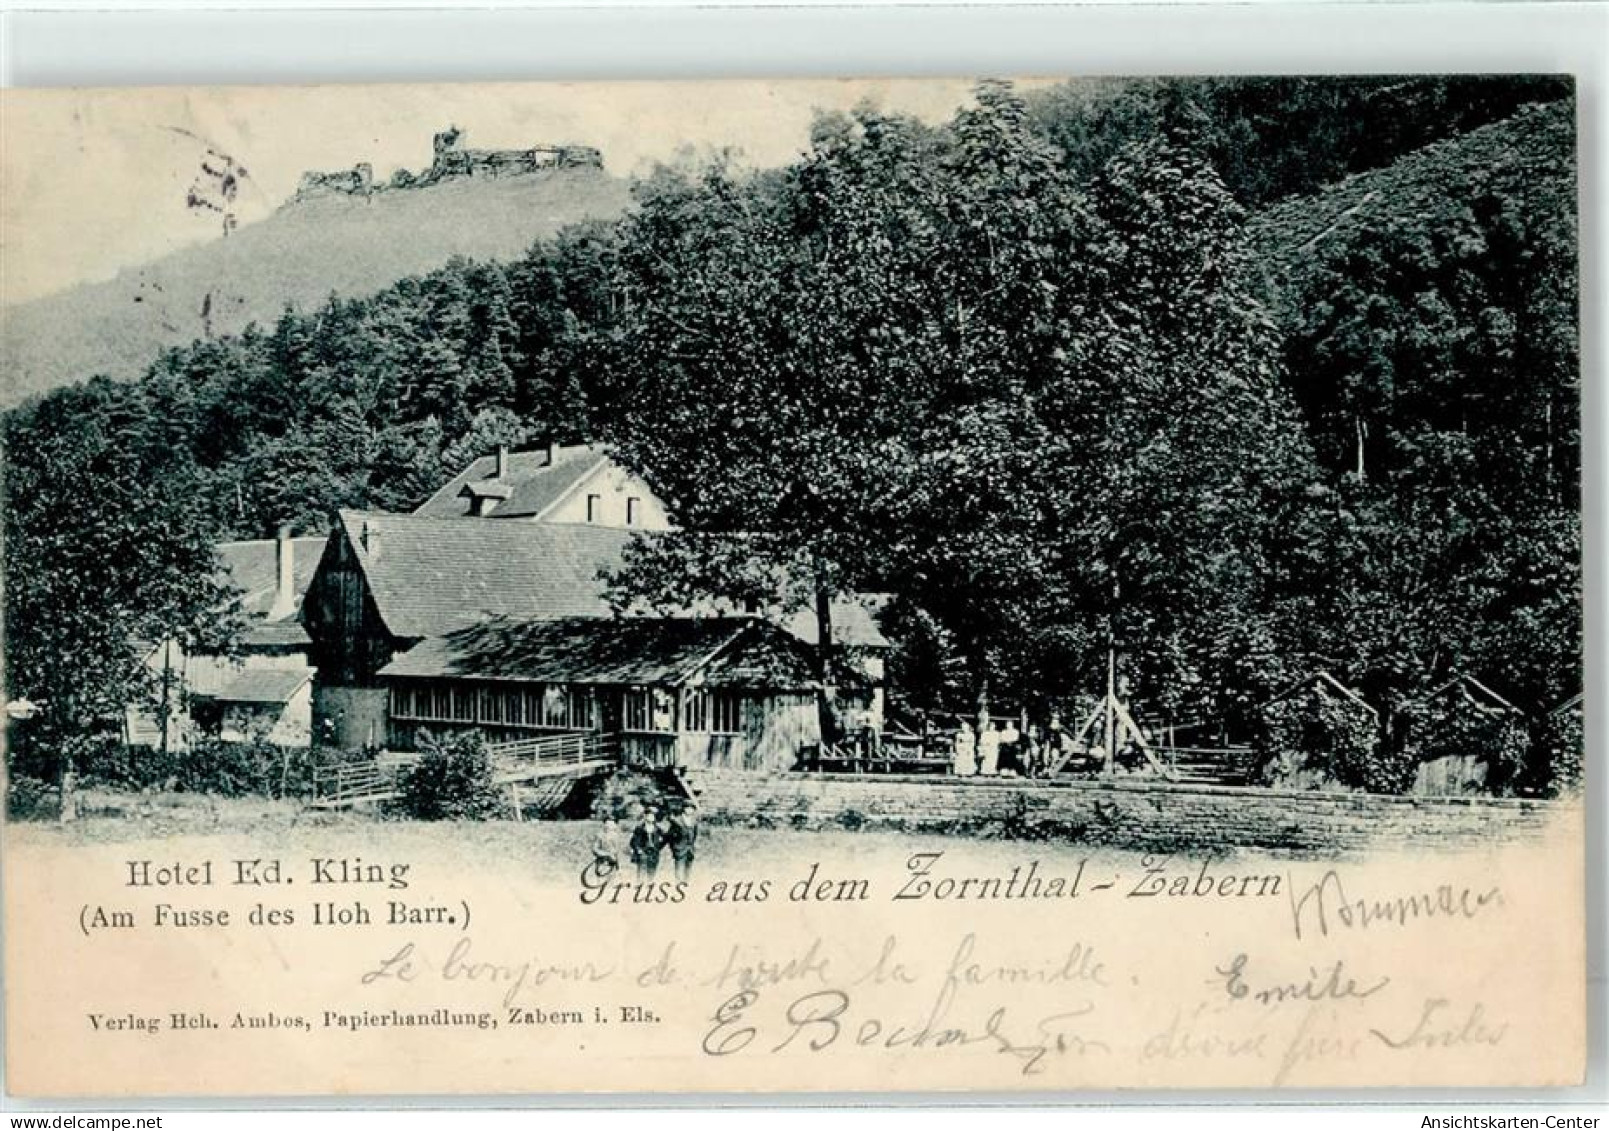 Hotel Ed. Kling
(Am Fusse des Hoh Barr.)
Gruss aus dem Zornthal-Zabern
Le bonjour de toute la famille.
Emile
E
Verlag Hch. Ambos, Papierhandlung, Zabern i. Els.
Ton frère Jules
delcampe.net
Ansichtskarten-Center